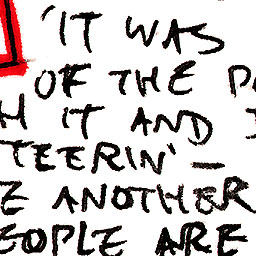 'IT WAS
OF THE
IT AND
TEERIN' —
ANOTHER
PEOPLE ARE